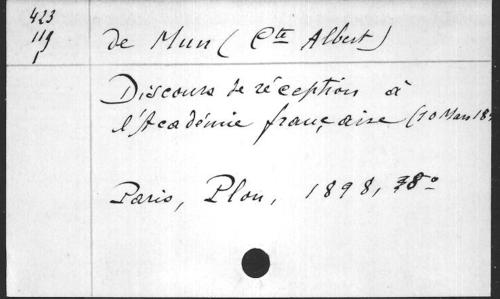 423
119
1
de Mun (Cte Albert)
Discours de réception à
l'Académie française (10 Mars 18
Paris, Plon, 1898, 8o